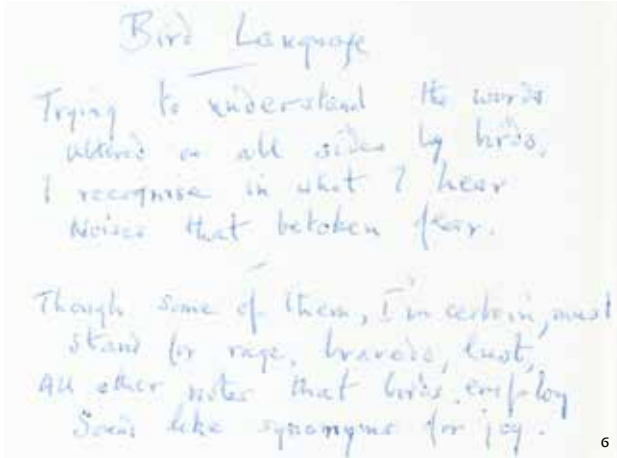 Bird Language
Trying to understand the words
uttered on all sides by birds,
I recognise in what I hear
Noises that betoken fear.
Though some of them, I'm certain, must
stand for rage, bravado, lust,
All other notes that birds employ
Sound like synonyms for joy.
6